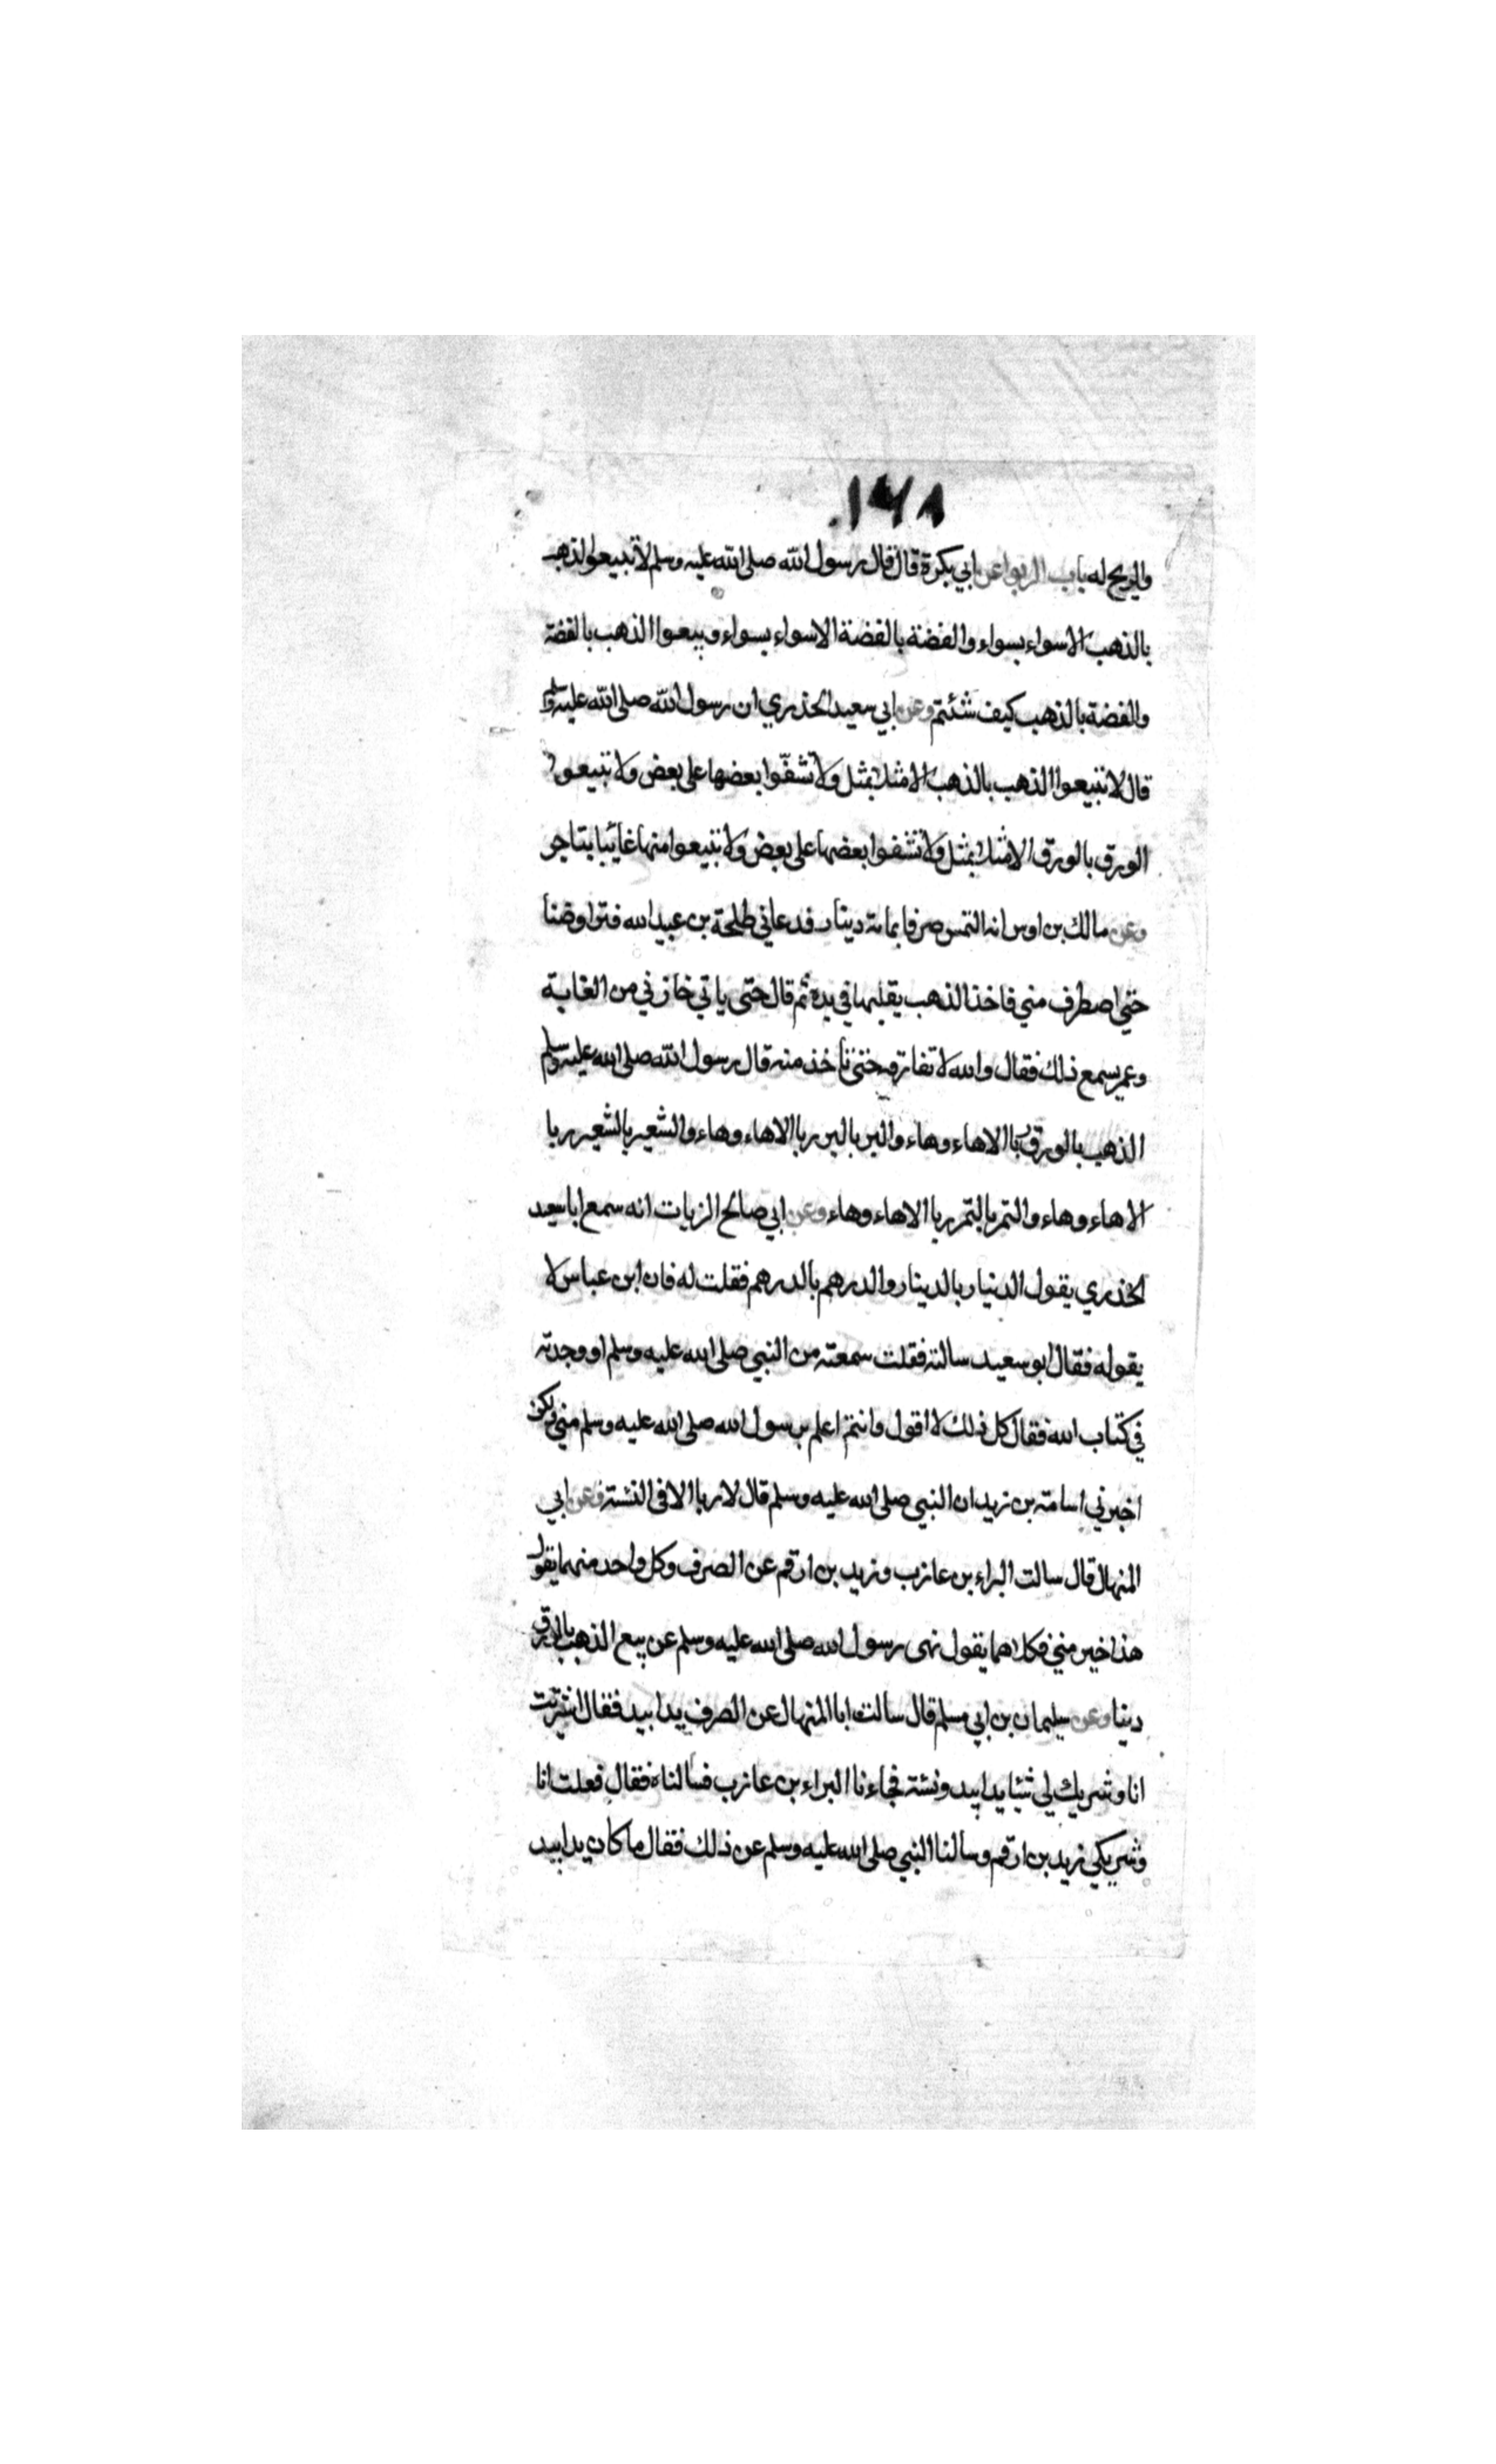 ١٦٨
والريح له باب الربوا عن ابي بكرة قال قال رسول الله صلى الله عليه وسلم لا تبيعوا الذهب
بالذهب الا سواء بسواء والفضة بالفضة الا سواء بسواء وبيعوا الذهب بالفضة
والفضة بالذهب كيف شئتم وعن ابي سعيد الخذري ان رسول الله صلى الله عليه وسلم
قال لا تبيعوا الذهب بالذهب الا مثلا بمثل ولا تشفّوا بعضها على بعض ولا تبيعوا
الورق بالورق الا مثلا بمثل ولا تشفوا بعضها على بعض ولا تبيعوا منها غائبا بناجز
وعن مالك بن اوس انه التمس صرفا بمائة دينار فدعاني طلحة بن عبيد الله فتراوضنا
حتى اصطرف مني فاخذ الذهب يقلبها في يده ثم قال حتى ياتي خازني من الغابة
وعمر يسمع ذلك فقال والله لا تفارقه حتى تاخذ منه قال رسول الله صلى الله عليه وسلم
الذهب بالورق ربا الا هاء وهاء والبر بالبر ربا الا هاء وهاء والشعير بالشعير ربا
الا هاء وهاء والتمر بالتمر ربا الا هاء وهاء وعن ابي صالح الزيات انه سمع ابا سعيد
الخذري يقول الدينار بالدينار والدرهم بالدرهم فقلت له فان ابن عباس لا
يقوله فقال ابو سعيد سالته فقلت سمعته من النبي صلى الله عليه وسلم او وجدته
في كتاب الله فقال كل ذلك لا اقول وانتم اعلم برسول الله صلى الله عليه وسلم مني ولكن
اخبرني اسامة بن زيد ان النبي صلى الله عليه وسلم قال لا ربا الا في النسئة وعن ابي
المنهال قال سالت البراء بن عازب وزيد بن ارقم عن الصرف وكل واحد منهما يقول
هذا خير مني فكلاهما يقول نهى رسول الله صلى الله عليه وسلم عن بيع الذهب بالورق
دينا وعن سليمان بن ابي مسلم قال سالت ابا المنهال عن الصرف يدا بيد فقال اشتريت
انا وشريك لي شيئا يدا بيد ونسئة فجاءنا البراء بن عازب فسالناه فقال فعلت انا
وشريكي زيد بن ارقم وسالنا النبي صلى الله عليه وسلم عن ذلك فقال ما كان يدا بيد